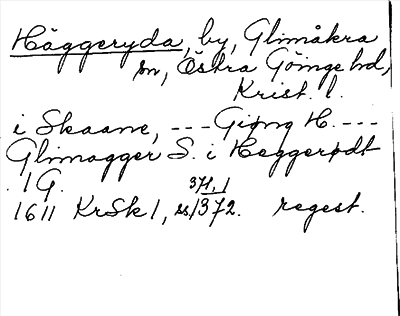 Häggeryda, by, Glimåkra
sn, Östra Göinge hd,
Krist. l.
i Skaane, --- Giøng H. ---
Glimagger S. i Heggerødt
1 G.
371, 1
1611 KrSk 1, ss/372. regest.